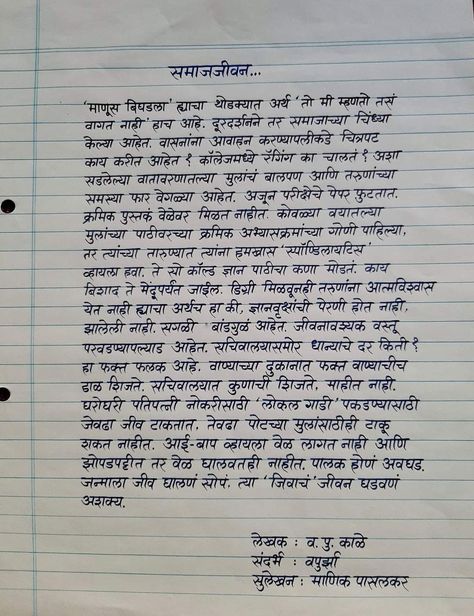 समाजजीवन...
'माणूस बिघडला' ह्याचा थोडक्यात अर्थ 'तो मी म्हणतो तसं
वागत नाही' हाच आहे. दूरदर्शनने तर समाजाच्या चिंध्या
केल्या आहेत. वासनांना आवाहन करण्यापलीकडे चित्रपट
काय करीत आहेत ? कॉलेजमध्ये रॅगिंग का चालतं ? अशा
सडलेल्या वातावरणातल्या मुलांचं बालपण आणि तरुणांच्या
समस्या फार वेगळ्या आहेत. अजून परीक्षेचे पेपर फुटतात.
क्रमिक पुस्तकं वेळेवर मिळत नाहीत. कोवळ्या वयातल्या
मुलांच्या पाठीवरच्या क्रमिक अभ्यासक्रमांच्या गोणी पाहिल्या,
तर त्यांच्या तारुण्यात त्यांना हमखास 'स्पाँडिलायटिस'
व्हायला हवा. ते सो कॉल्ड ज्ञान पाठीचा कणा मोडतं. काय
बिशाद ते मेंदूपर्यंत जाईल. डिग्री मिळवूनही तरुणांना आत्मविश्वास
येत नाही ह्याचा अर्थच हा की, ज्ञानवृक्षांची पेरणी होत नाही,
झालेली नाही. सगळी बांडगुळं आहेत. जीवनावश्यक वस्तू
परवडण्यापल्याड आहेत. सचिवालयासमोर धान्याचे दर किती ?
हा फक्त फलक आहे. वाण्याच्या दुकानात फक्त वाण्याचीच
डाळ शिजते. सचिवालयात कुणाची शिजते, माहीत नाही.
घरोघरी पतिपत्नी नोकरीसाठी 'लोकल गाडी' पकडण्यासाठी
जेवढा जीव टाकतात, तेवढा पोटच्या मुलांसाठीही टाकू
शकत नाहीत. आई-बाप व्हायला वेळ लागत नाही आणि
झोपडपट्टीत तर वेळ घालवतही नाहीत. पालक होणं अवघड.
जन्माला जीव घालणं सोपं. त्या 'जिवाचं' जीवन घडवणं
अशक्य.
लेखक : व. पु. काळे
संदर्भ : वपुर्झा
सुलेखन : माणिक पासलकर